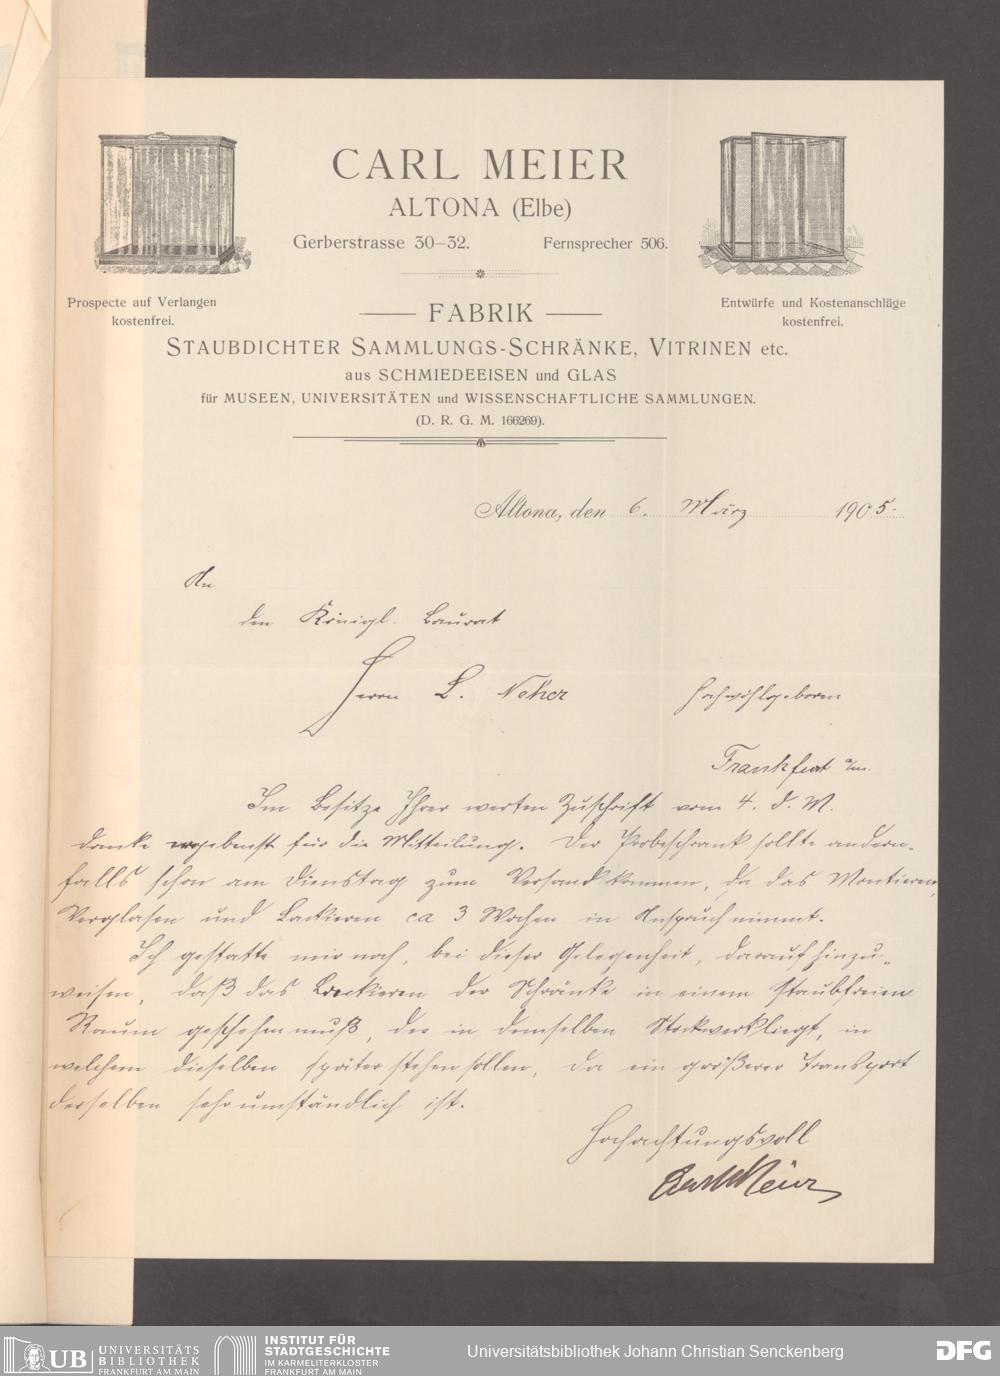 CARL MEIER
ALTONA (Elbe)
Gerberstrasse 30–32. Fernsprecher 506.
Prospecte auf Verlangen
kostenfrei.
Entwürfe und Kostenanschläge
kostenfrei.
FABRIK
STAUBDICHTER SAMMLUNGS-SCHRÄNKE, VITRINEN etc.
aus SCHMIEDEEISEN und GLAS
für MUSEEN, UNIVERSITÄTEN und WISSENSCHAFTLICHE SAMMLUNGEN.
(D. R. G. M. 166269).
Altona, den 6. März 1905.
An
den Königl. Baurat
Herrn L. Neher Hochwohlgeboren
Frankfurt a/m.
Im Besitze Ihrer werten Zuschrift vom 4. d. M.
danke ergebenst für die Mitteilung. Der Probeschrank sollte andern-
falls schon am Dienstag zum Versand kommen, da das Montieren,
Verglasen und Lackieren ca 3 Wochen in Anspruch nimmt.
Ich gestatte mir noch, bei dieser Gelegenheit, darauf hinzu-
weisen, daß das Lackieren der Schränke in einem staubfreien
Raum geschehen muß, der in demselben Stockwerk liegt, in
welchem dieselben später stehen sollen, da ein größerer Transport
derselben sehr umständlich ist.
Hochachtungsvoll
Carl Meier
UB UNIVERSITÄTS
BIBLIOTHEK
FRANKFURT AM MAIN
INSTITUT FÜR
STADTGESCHICHTE
IM KARMELITERKLOSTER
FRANKFURT AM MAIN
Universitätsbibliothek Johann Christian Senckenberg
DFG